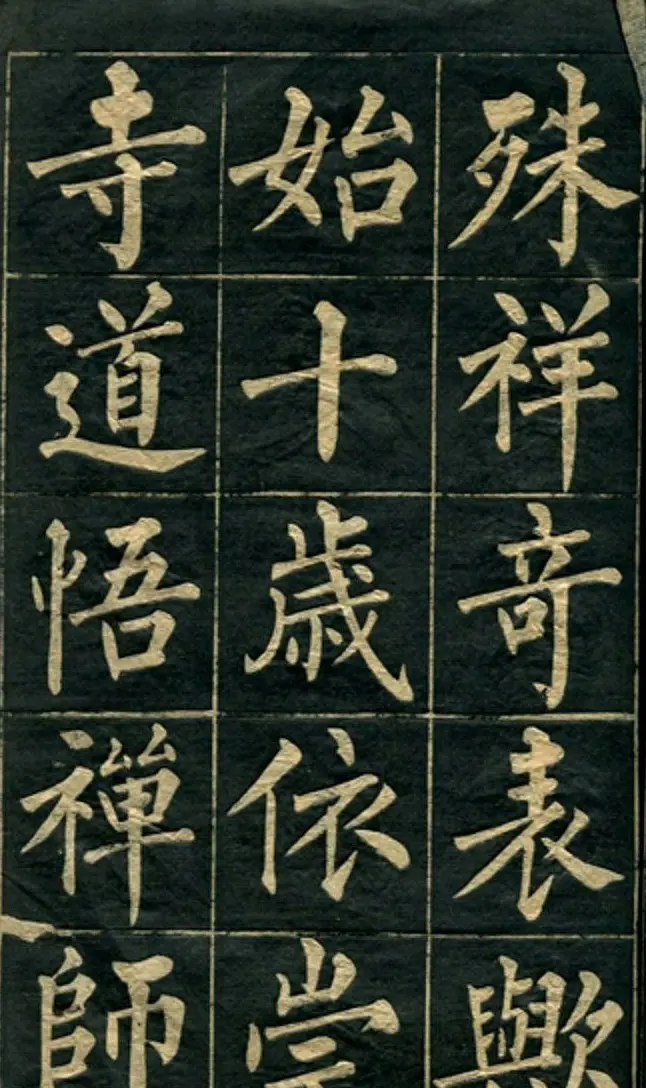 殊祥奇表歟
始十歳依崇
寺道悟禪師